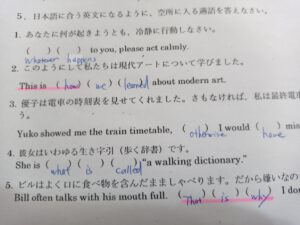 5．日本語に合う英文になるように，空所に入る適語を答えなさい。
1. あなたに何が起きようとも，冷静に行動しなさい。
( )( ) to you, please act calmly.
whatever happens
2. このようにして私たちは現代アートについて学びました。
This is (how) (we) (learned) about modern art.
3. 優子は電車の時刻表を見せてくれました。さもなければ，私は最終電車
う。
Yuko showed me the train timetable, (otherwise) I would (have) mis
4. 彼女はいわゆる生き字引（歩く辞書）です。
She is (what) (is) (called) "a walking dictionary."
5. ビルはよく口に食べ物を含んだまましゃべります。だから嫌いなの
Bill often talks with his mouth full. (That) (is) (why) I do